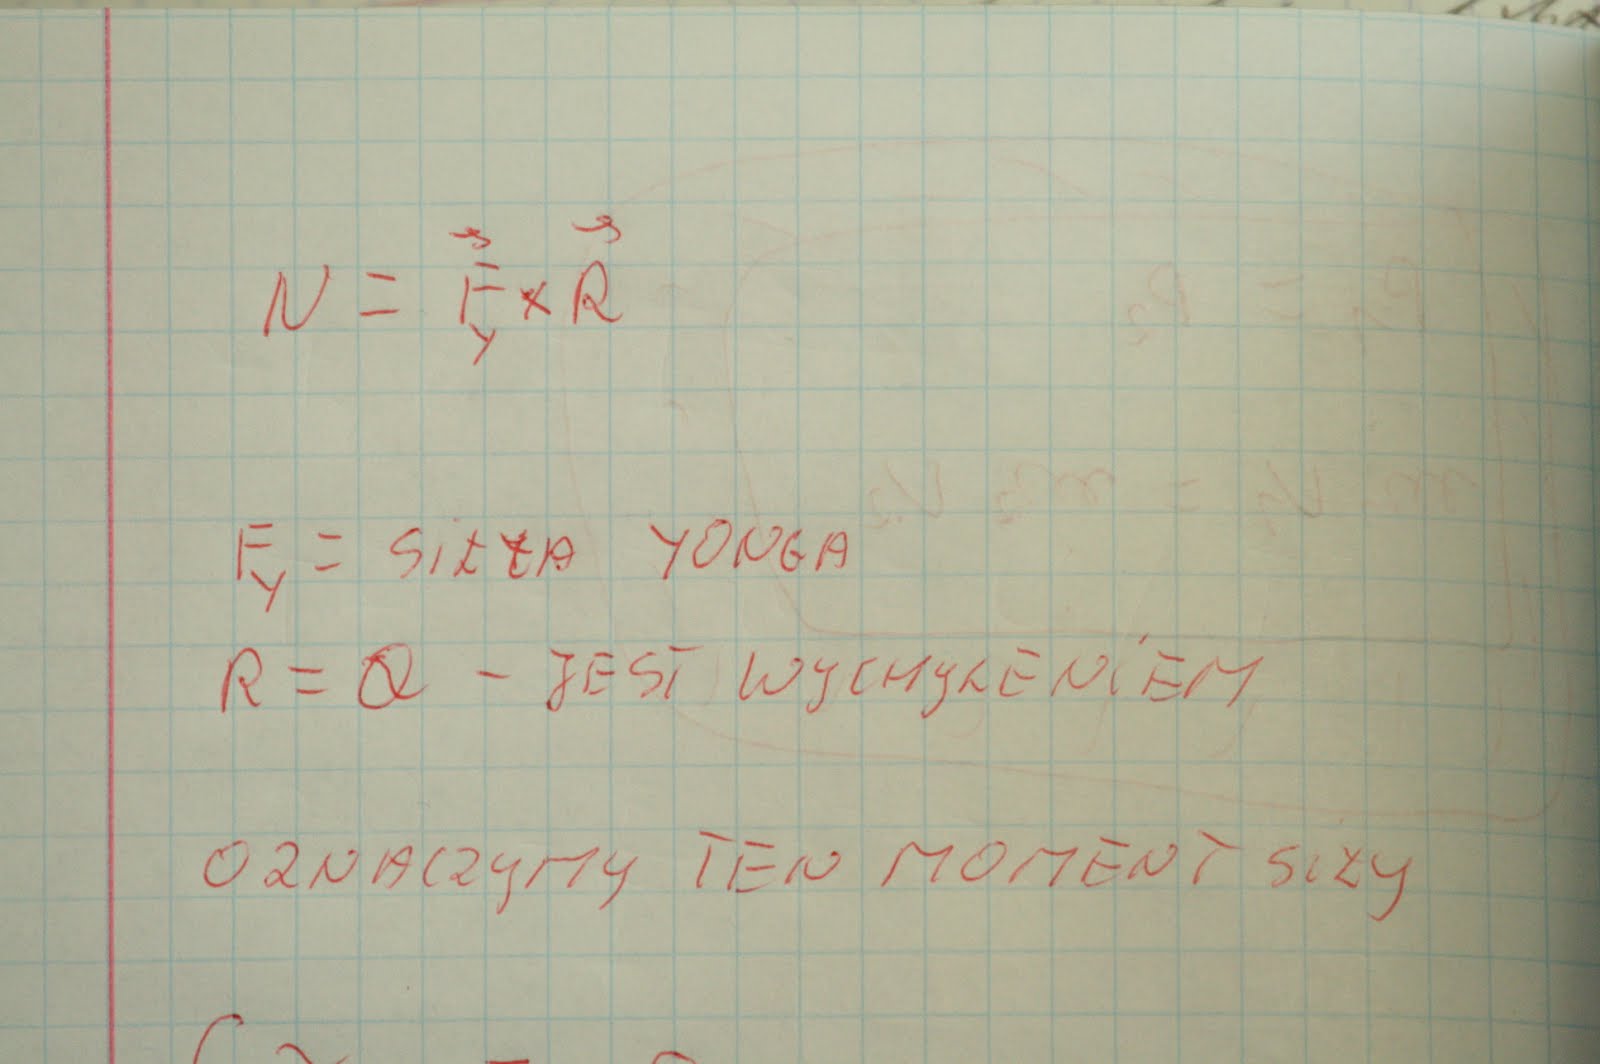 N = F⃗y × R⃗
Fy = SiŁŁA YONGA
R = Q - JEST WYCHYLENiEM
OZNACZYMY TEN MOMENT SiŁY